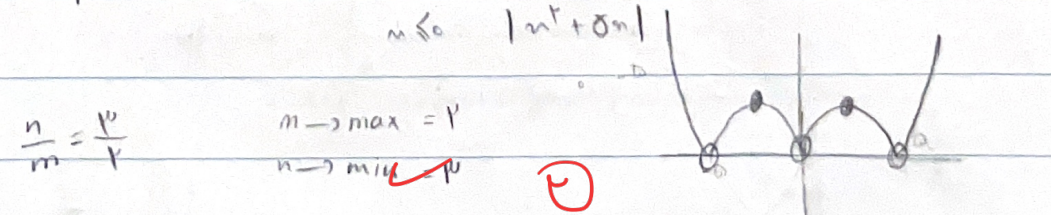 x ≤ 0 |x² + 5x|
n/m = ۳/۲
m → max = ۲
n → min = ۳
۲